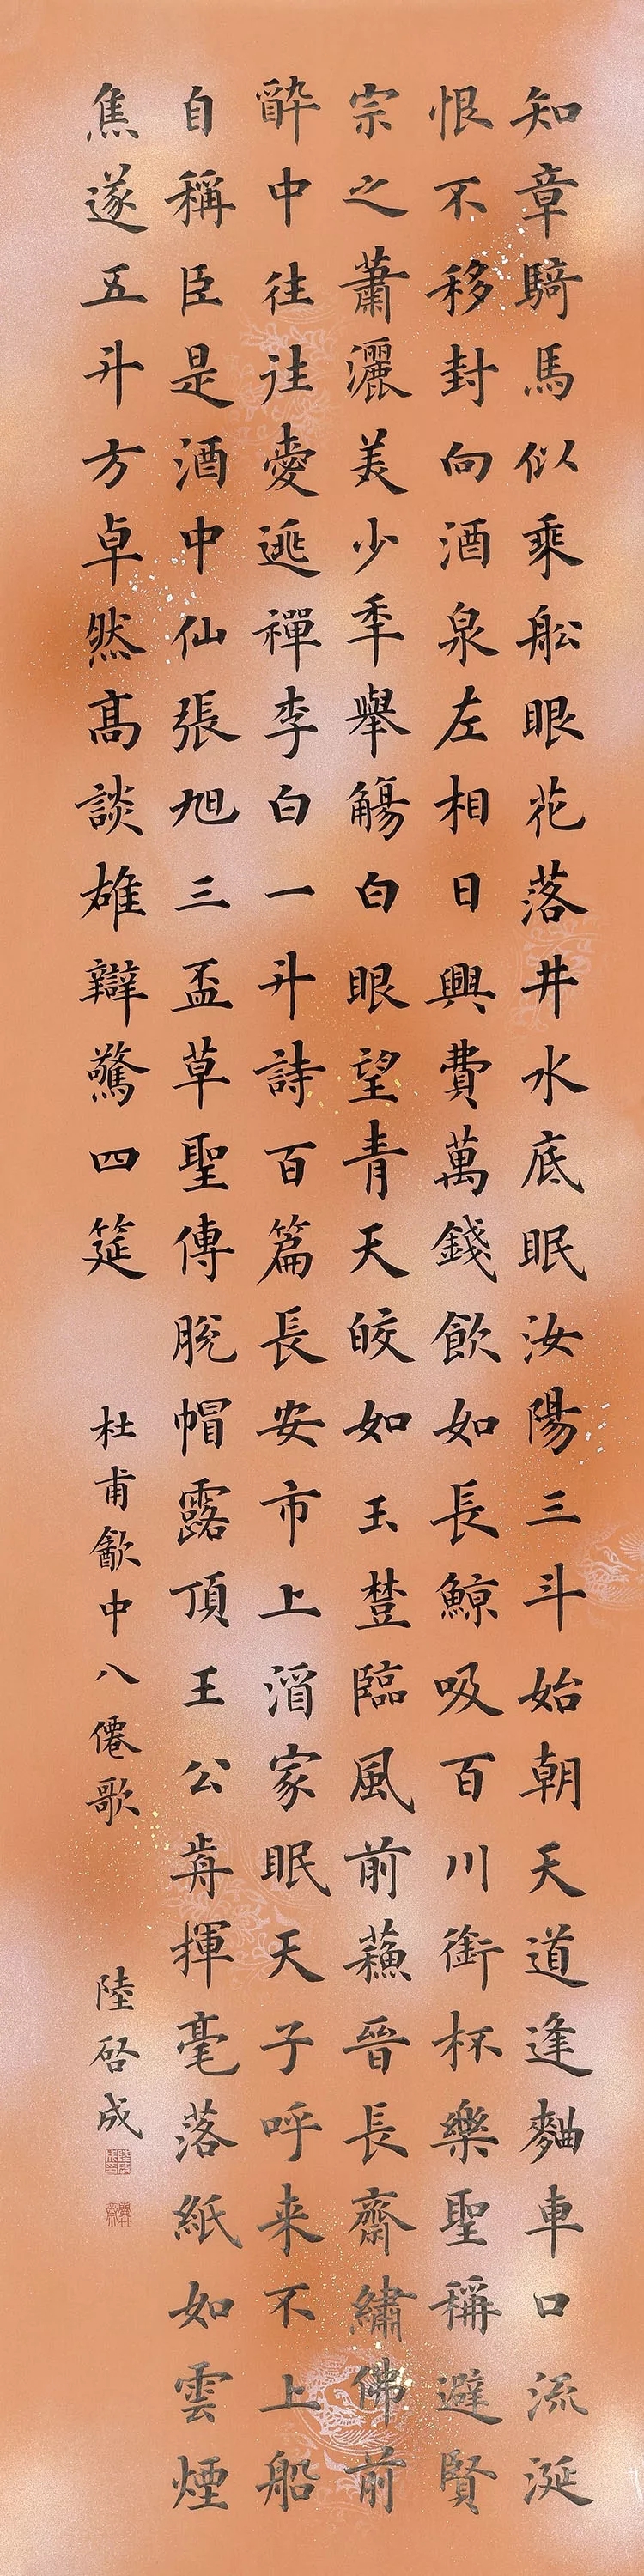 知章騎馬似乘舩眼花落井水底眠汝陽三斗始朝天道逢麴車口流涎
恨不移封向酒泉左相日興費萬錢飲如長鯨吸百川銜杯樂聖稱避賢
宗之蕭灑美少秊舉觴白眼望青天皎如玉樹臨風前蘓晉長齋繡佛前
醉中往往愛逃禪李白一升詩百篇長安市上酒家眠天子呼来不上船
自稱臣是酒中仙張旭三盃草聖傳脫帽露頂王公歬揮毫落紙如雲煙
焦遂五升方卓然高談雄辯驚四筵
杜甫㱃中八僊歌
陸啓成